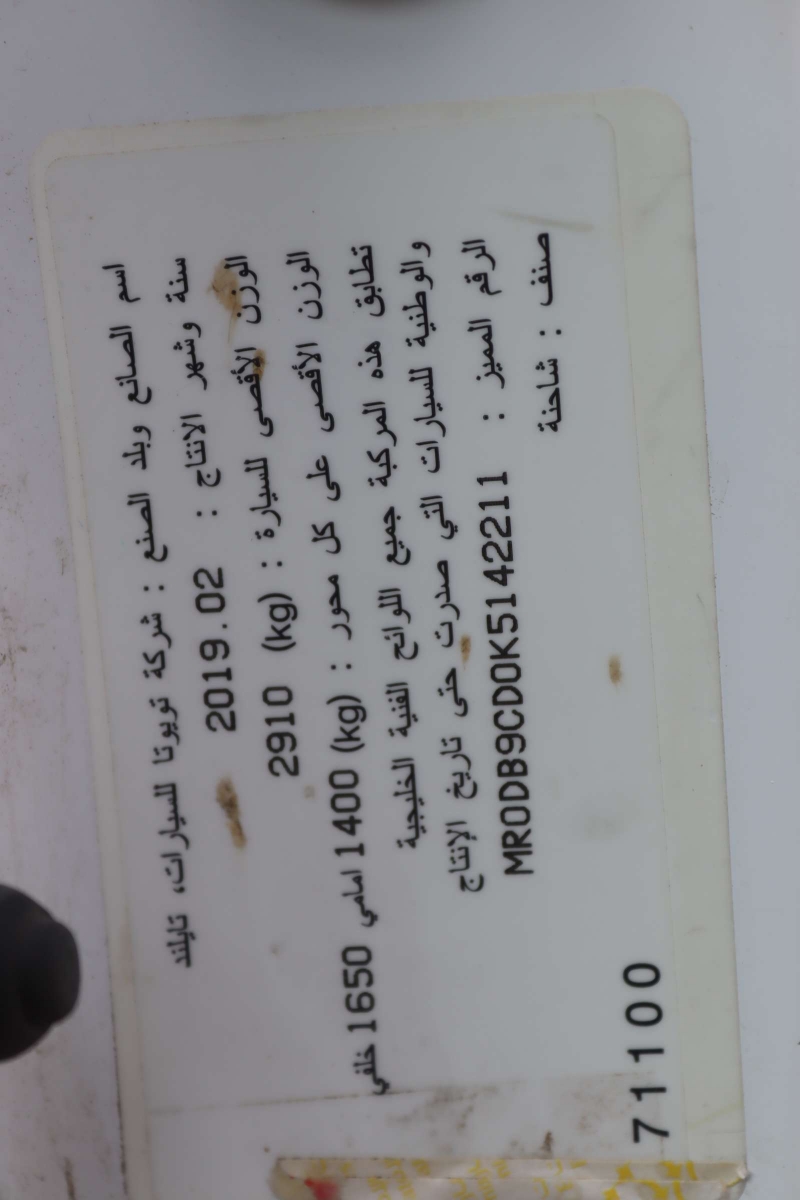 اسم الصانع وبلد الصنع : شركة تويوتا للسيارات، تايلند
سنة وشهر الانتاج : 2019.02
الوزن الأقصى للسيارة : (kg) 2910
الوزن الأقصى على كل محور : (kg) 1400 امامي 1650 خلفي
تطابق هذه المركبة جميع اللوائح الفنية الخليجية
والوطنية للسيارات التي صدرت حتى تاريخ الإنتاج
الرقم المميز : MR0DB9CD0K5142211
صنف : شاحنة
71100